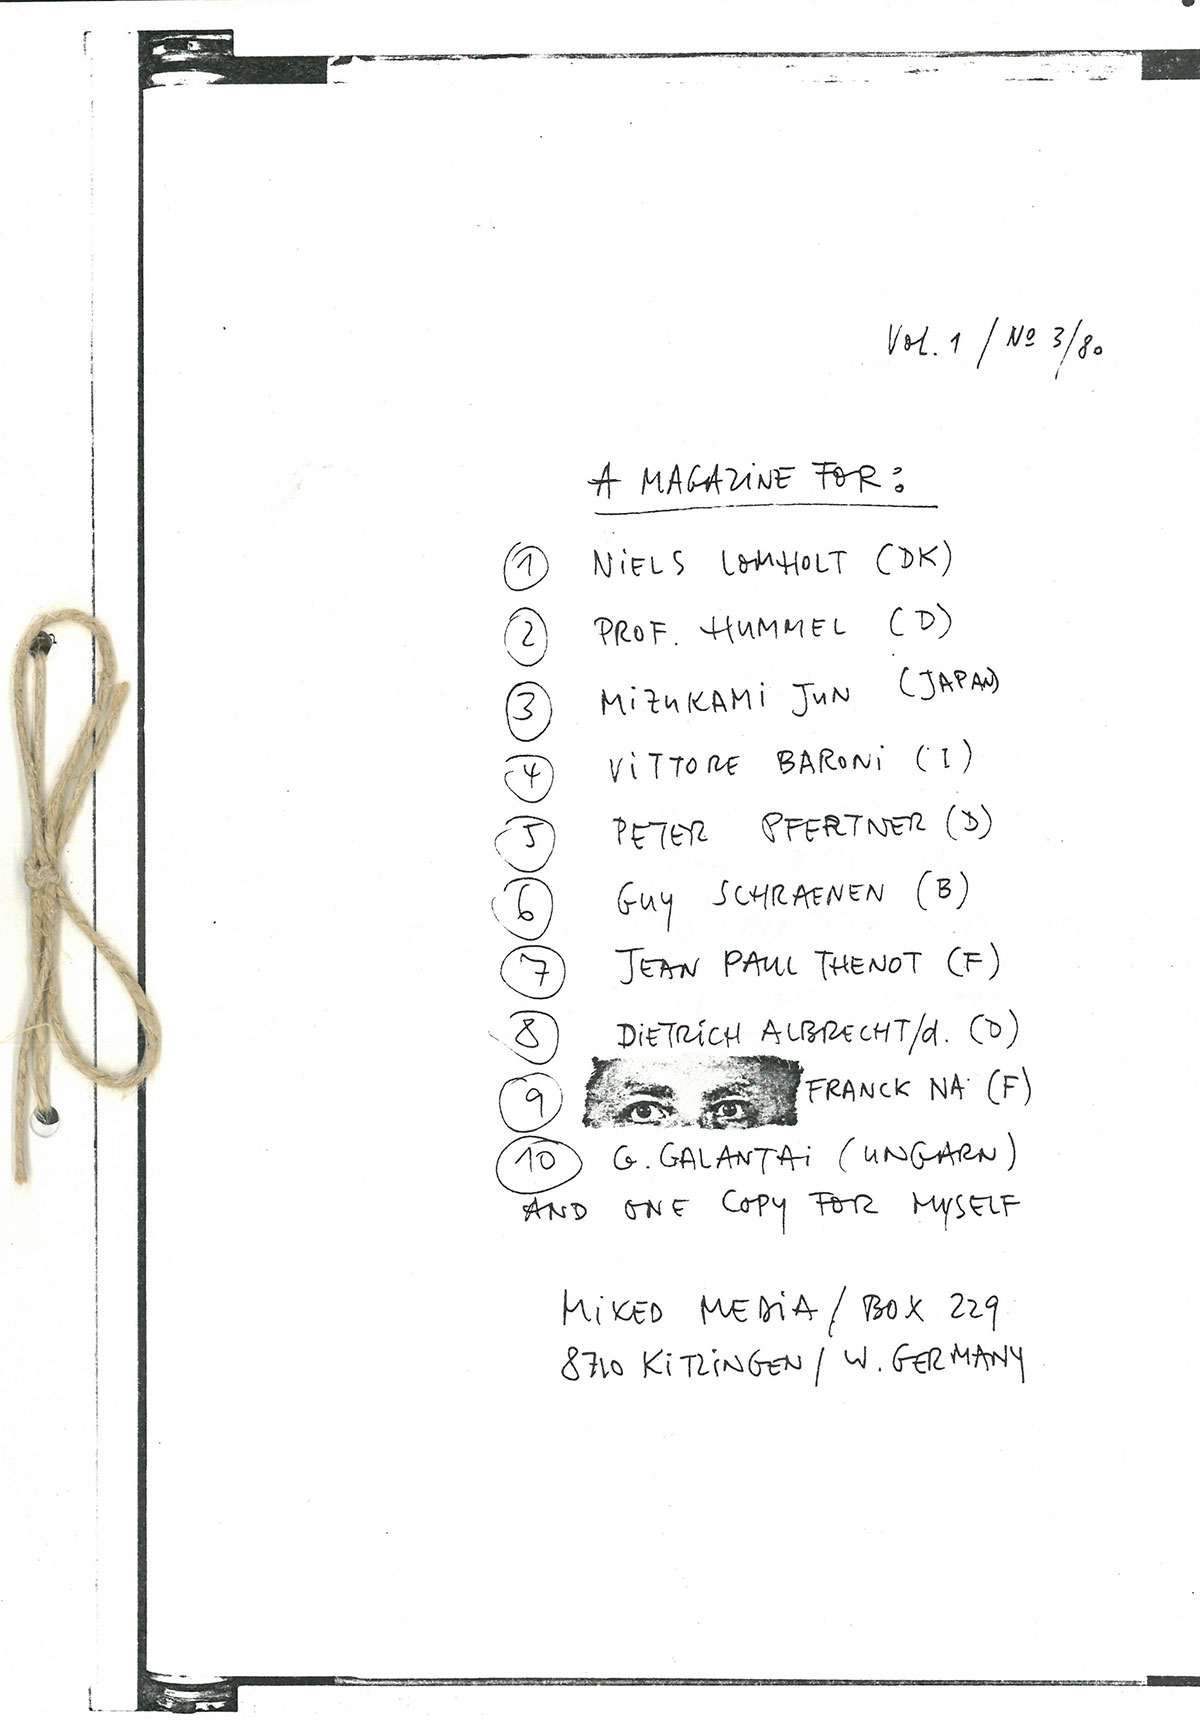 Vol. 1 / Nº 3/80
A MAGAZINE FOR:
1 NiELS LOMHOLT (DK)
2 PROF. HUMMEL (D)
3 MiZUKAMi JUN (JAPAN)
4 ViTTORE BARONi (I)
5 PETER PFERTNER (D)
6 GUY SCHRAENEN (B)
7 JEAN PAUL THENOT (F)
8 DiETRiCH ALBRECHT/d. (D)
9 FRANCK NA (F)
10 G. GALANTAi (UNGARN)
AND ONE COPY FOR MYSELF
MiXED MEDiA / BOX 229
8710 KiTZiNGEN / W. GERMANY